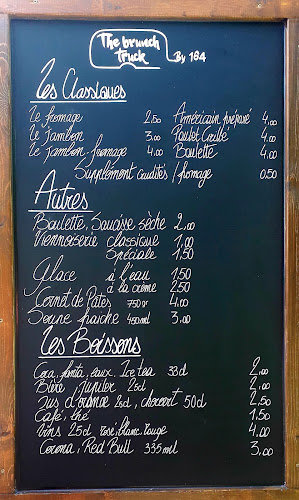 The brunch
truck By 184
Les Classiques
Le fromage 2.50 Américain préparé 4,00
Le Jambon 3.00 Poulet Grillé 4,00
Le Jambon-fromage 4.00 Boulette 4,00
Supplément crudités / fromage 0.50
Autres
Boulette, Saucisse sèche 2,00
Viennoiserie classique 1,00
Spéciale 1,50
Glace à l'eau 1,50
à la crème 2,50
Cornet de Pâtes 750gr 4.00
Soupe fraiche 450ml 3,00
Les Boissons
Coca, fanta, eaux, Ice tea 33cl 2,00
Bière Jupiler 25cl 2,00
Jus d'orange 25cl, chocovit 50cl 2,50
Café, thé 1,50
Vins 25cl rosé, blanc, rouge 4,00
Corona, Red Bull 335ml 3,00